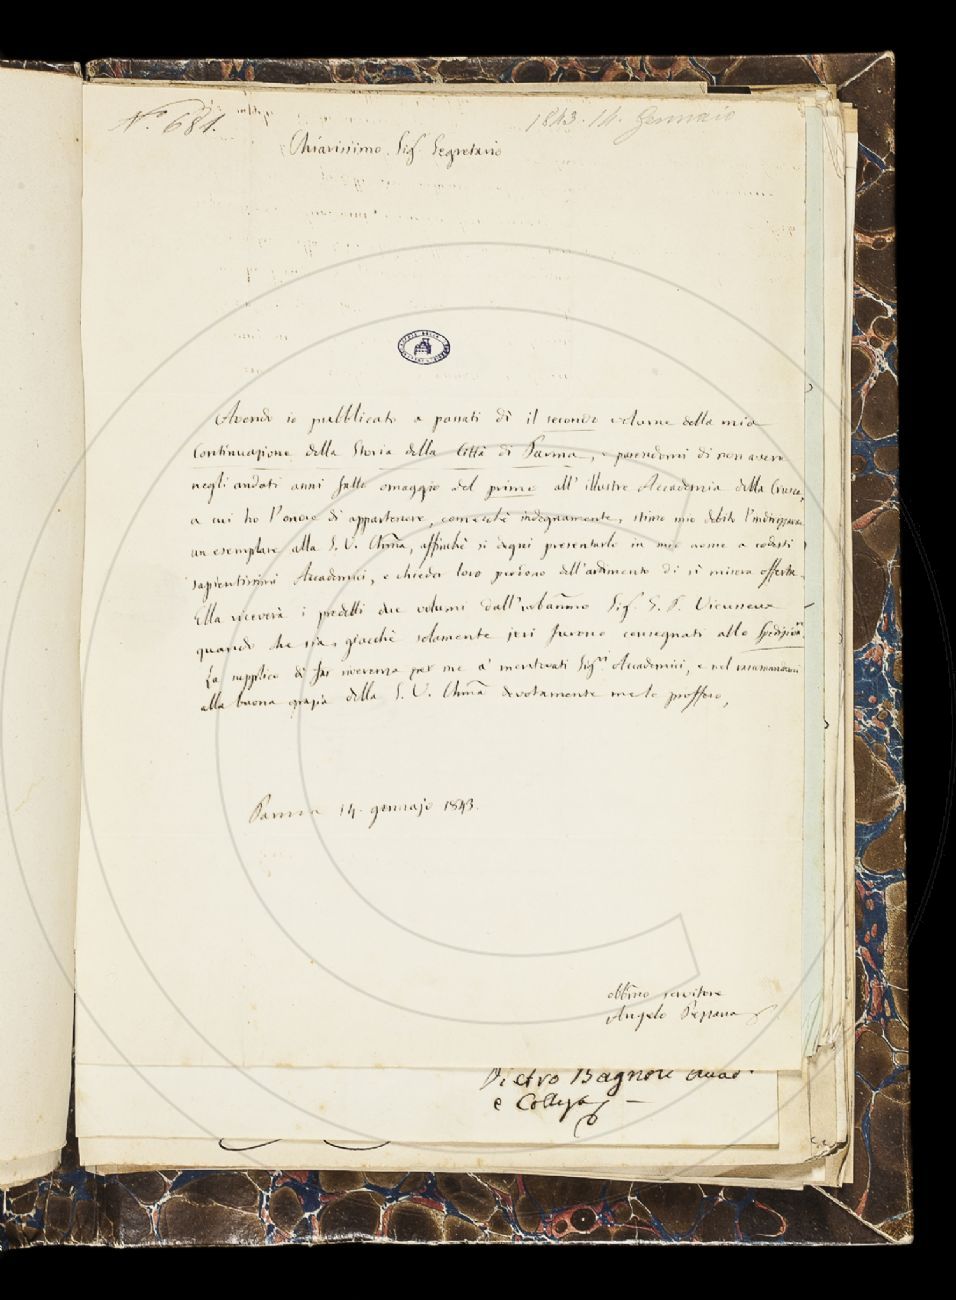 N.° 681.
1843. 14. Gennaio
Chiarissimo Sig. Segretario
Avendo io pubblicato a passati dì il secondo volume della mia
Continuazione della Storia della Città di Parma, e parendomi di non avere
negli andati anni fatto omaggio del primo all'illustre Accademia della Crusca,
a cui ho l'onore di appartenere, comecchè indegnamente, stimo mio debito l'indirizzarne
un esemplare alla S. V. Chma, affinchè si degni presentarlo in mio nome a codesti
sapientissimi Accademici, e chieder loro perdono dell'ardimento di sì misera offerta.
Ella riceverà i predetti due volumi dall'urbanmo Sig. G. P. Vieusseux
quando che sia, giacchè solamente jeri furono consegnati allo
La supplico di far riverenza per me a' mentovati Sigri Accademici, e nel raccomandarmi
alla buona grazia della S. V. Chma devotamente me le proffero,
Parma 14. gennajo 1843.
obbmo servitore
Angelo Pezzana
Pietro Bagnoli Accad.
e Collega